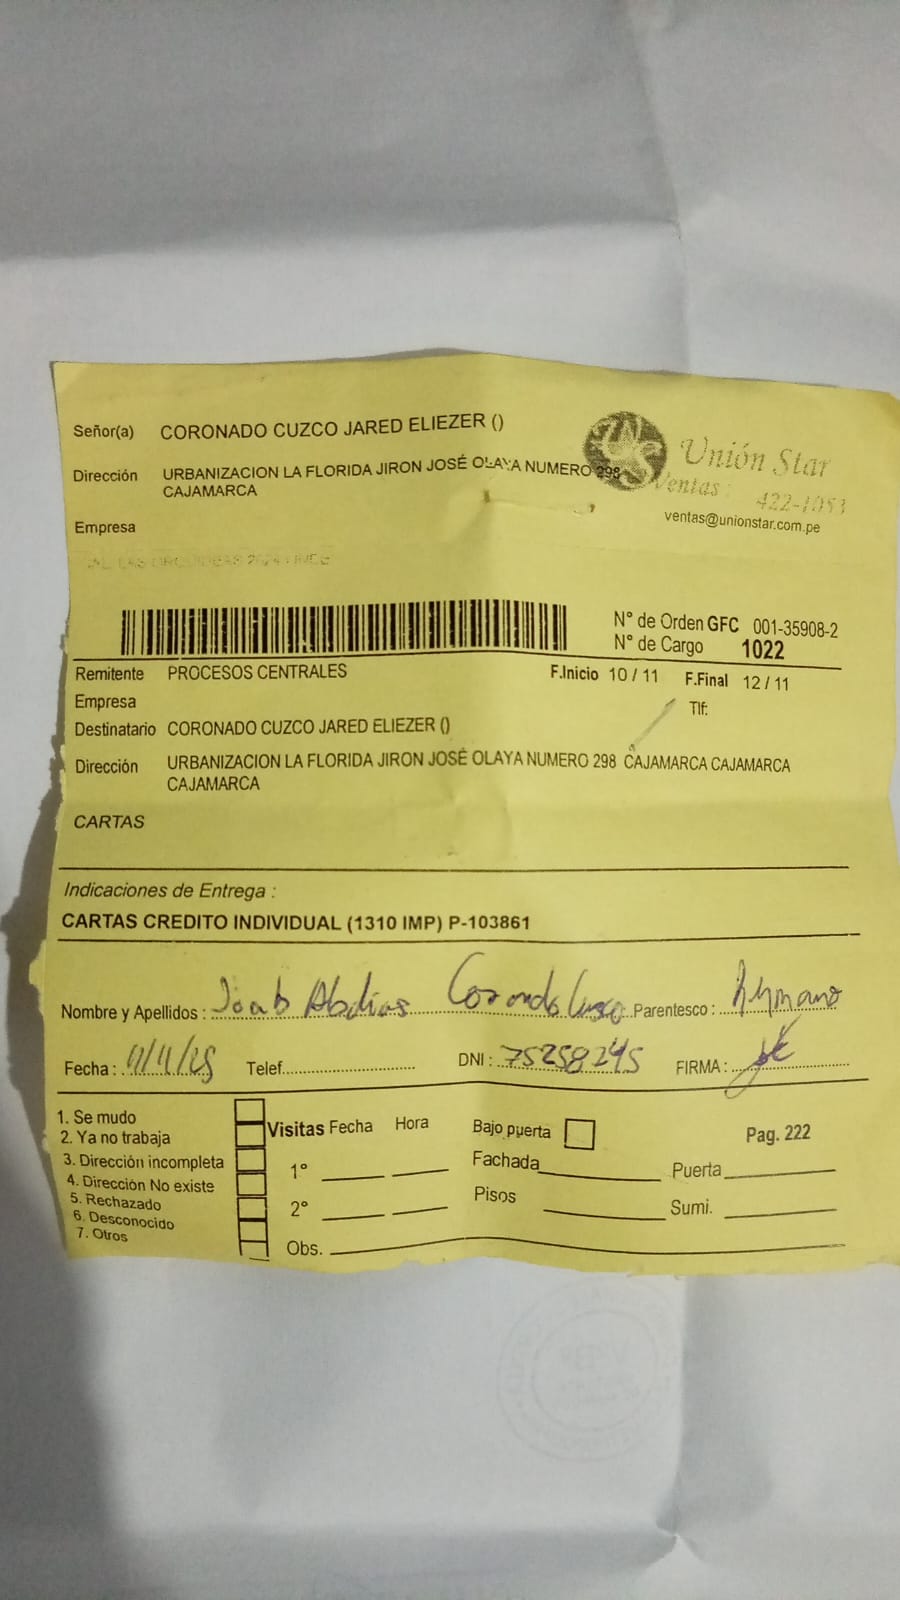 Señor(a) CORONADO CUZCO JARED ELIEZER ()
Dirección URBANIZACION LA FLORIDA JIRON JOSÉ OLAYA NUMERO 298
CAJAMARCA
Unión Star
Ventas: 422-1053
ventas@unionstar.com.pe
Empresa
N° de Orden GFC 001-35908-2
N° de Cargo 1022
Remitente PROCESOS CENTRALES F.Inicio 10 / 11 F.Final 12 / 11
Empresa Tlf:
Destinatario CORONADO CUZCO JARED ELIEZER ()
Dirección URBANIZACION LA FLORIDA JIRON JOSÉ OLAYA NUMERO 298 CAJAMARCA CAJAMARCA
CAJAMARCA
CARTAS
Indicaciones de Entrega :
CARTAS CREDITO INDIVIDUAL (1310 IMP) P-103861
Nombre y Apellidos : Joab Abdias Coronado Cuzco Parentesco : Hermano
Fecha : 11/11/25 Telef. DNI : 75258245 FIRMA :
1. Se mudo
2. Ya no trabaja
3. Dirección incompleta
4. Dirección No existe
5. Rechazado
6. Desconocido
7. Otros
Visitas Fecha Hora
1°
2°
Obs.
Bajo puerta
Fachada
Pisos
Pag. 222
Puerta
Sumi.